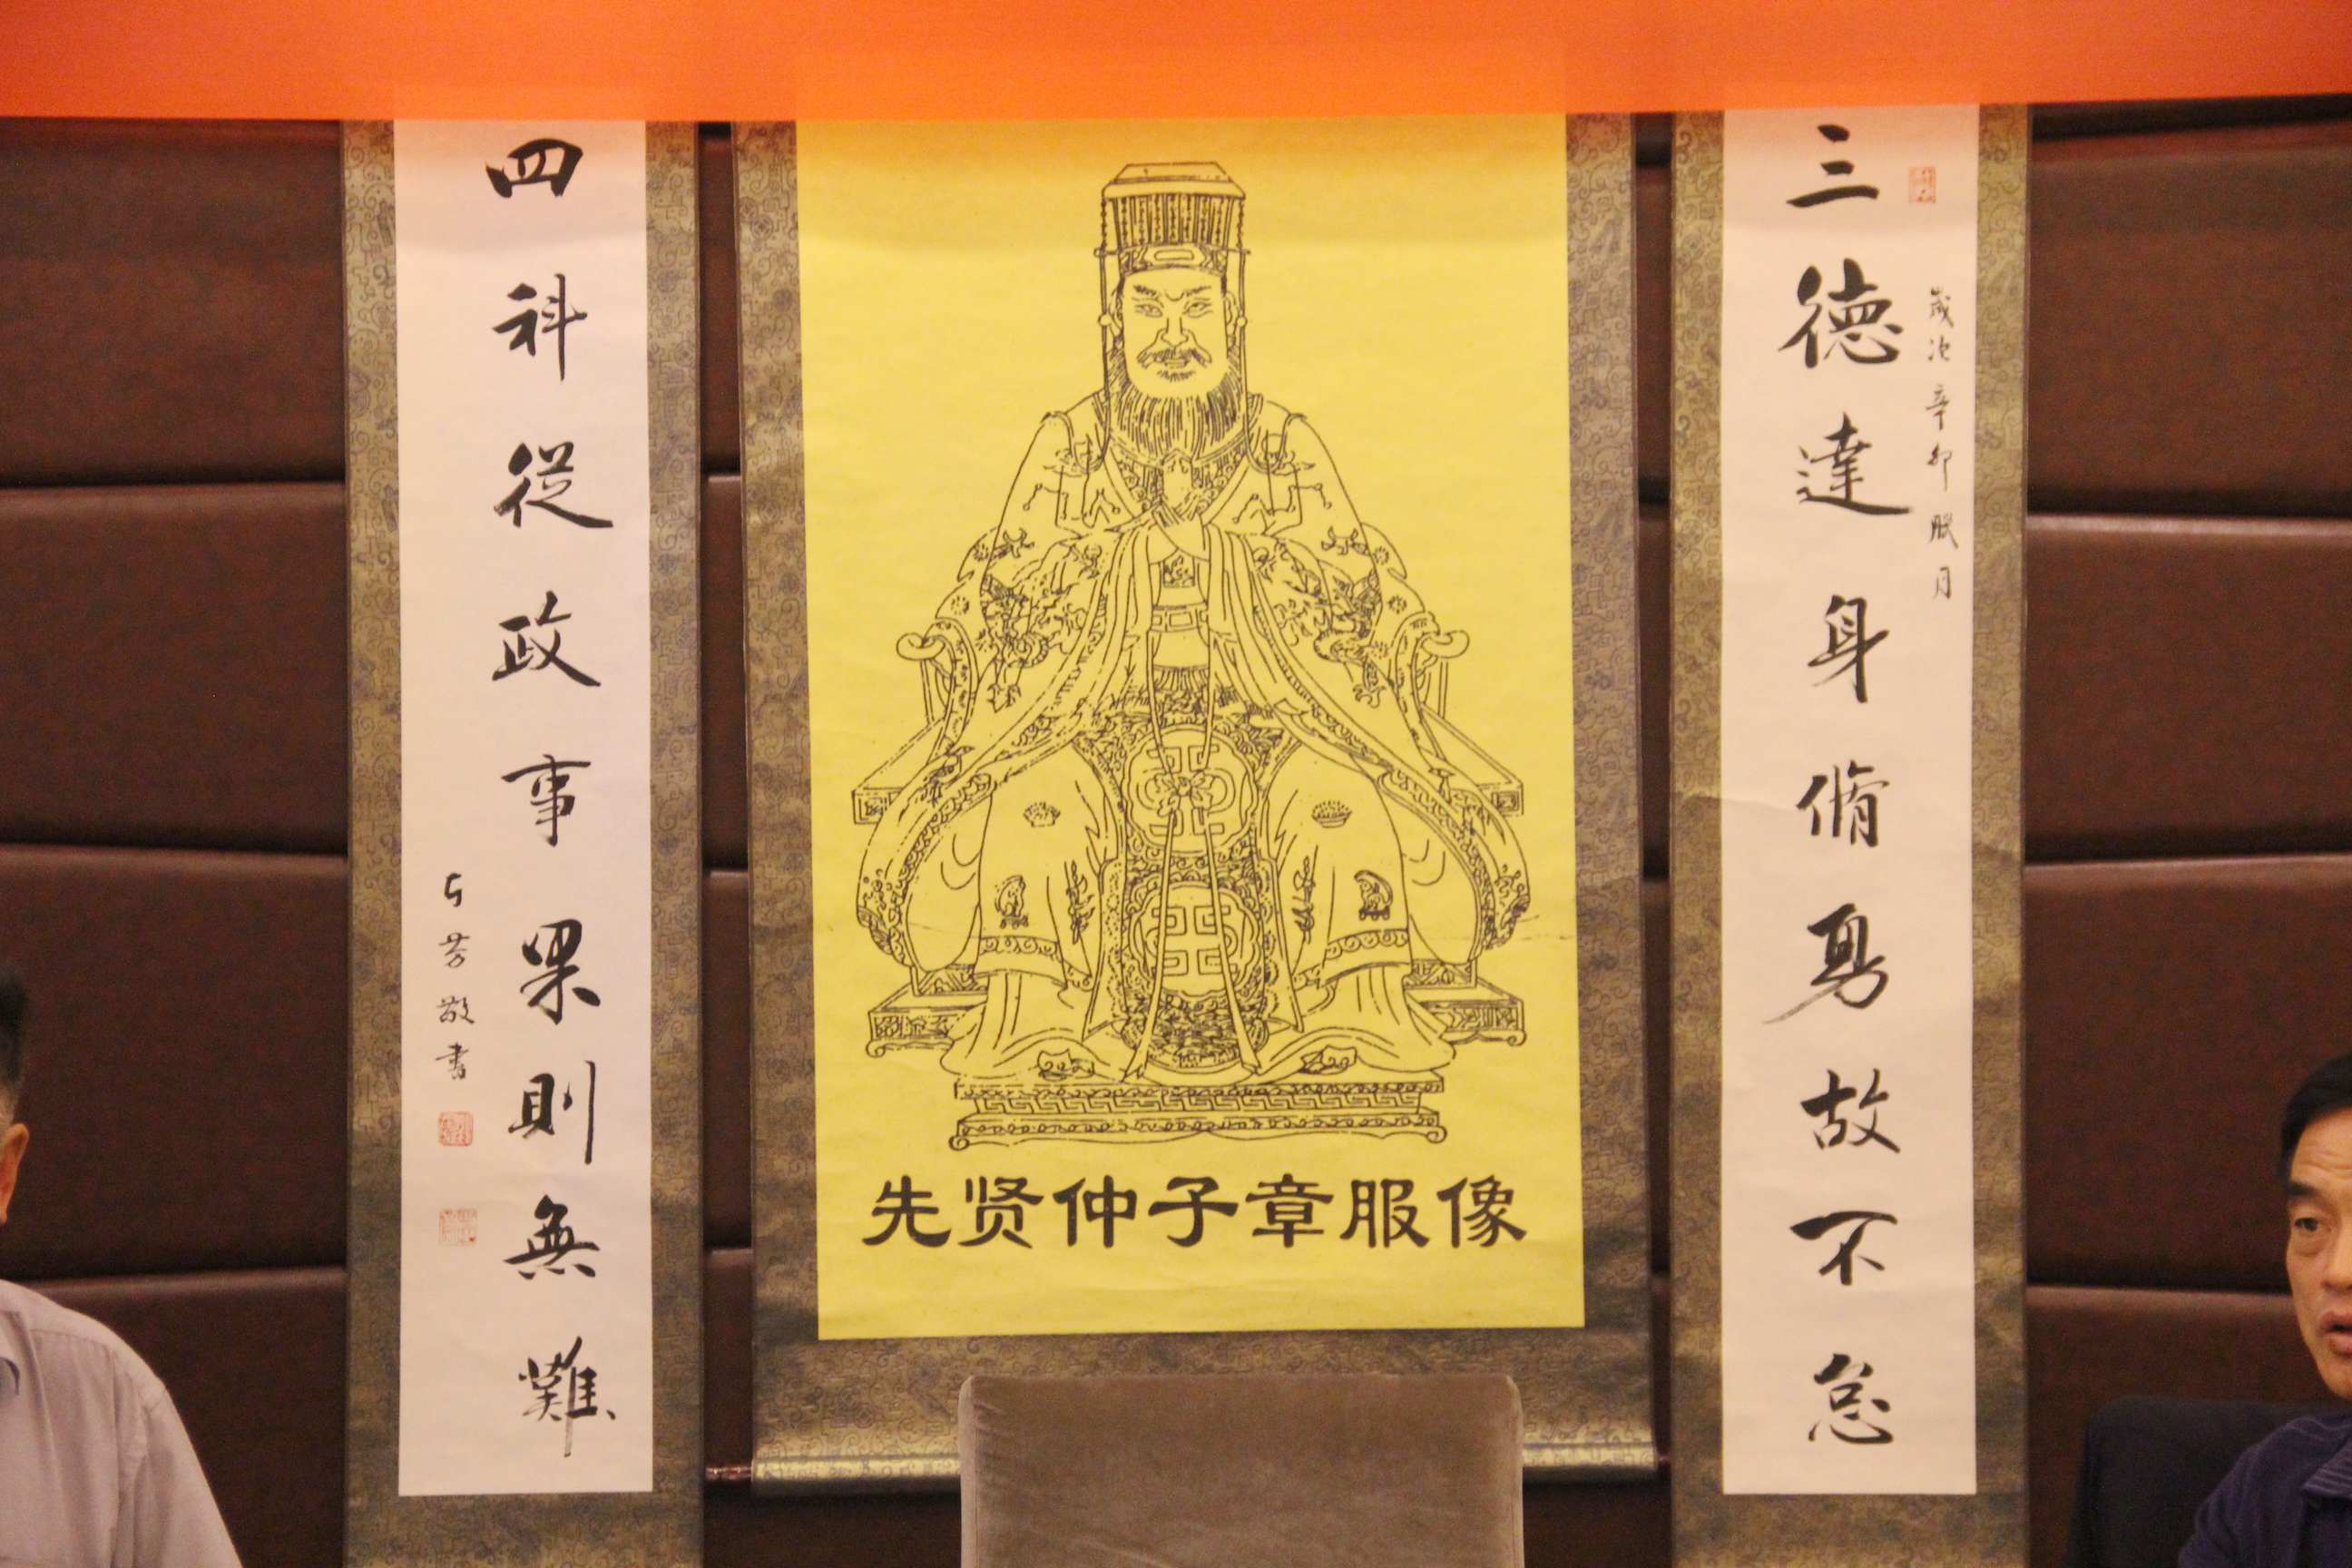 三德達身脩勇故不怠
歲次辛卯臘月
先贤仲子章服像
四科從政事果則無難
芳敬書